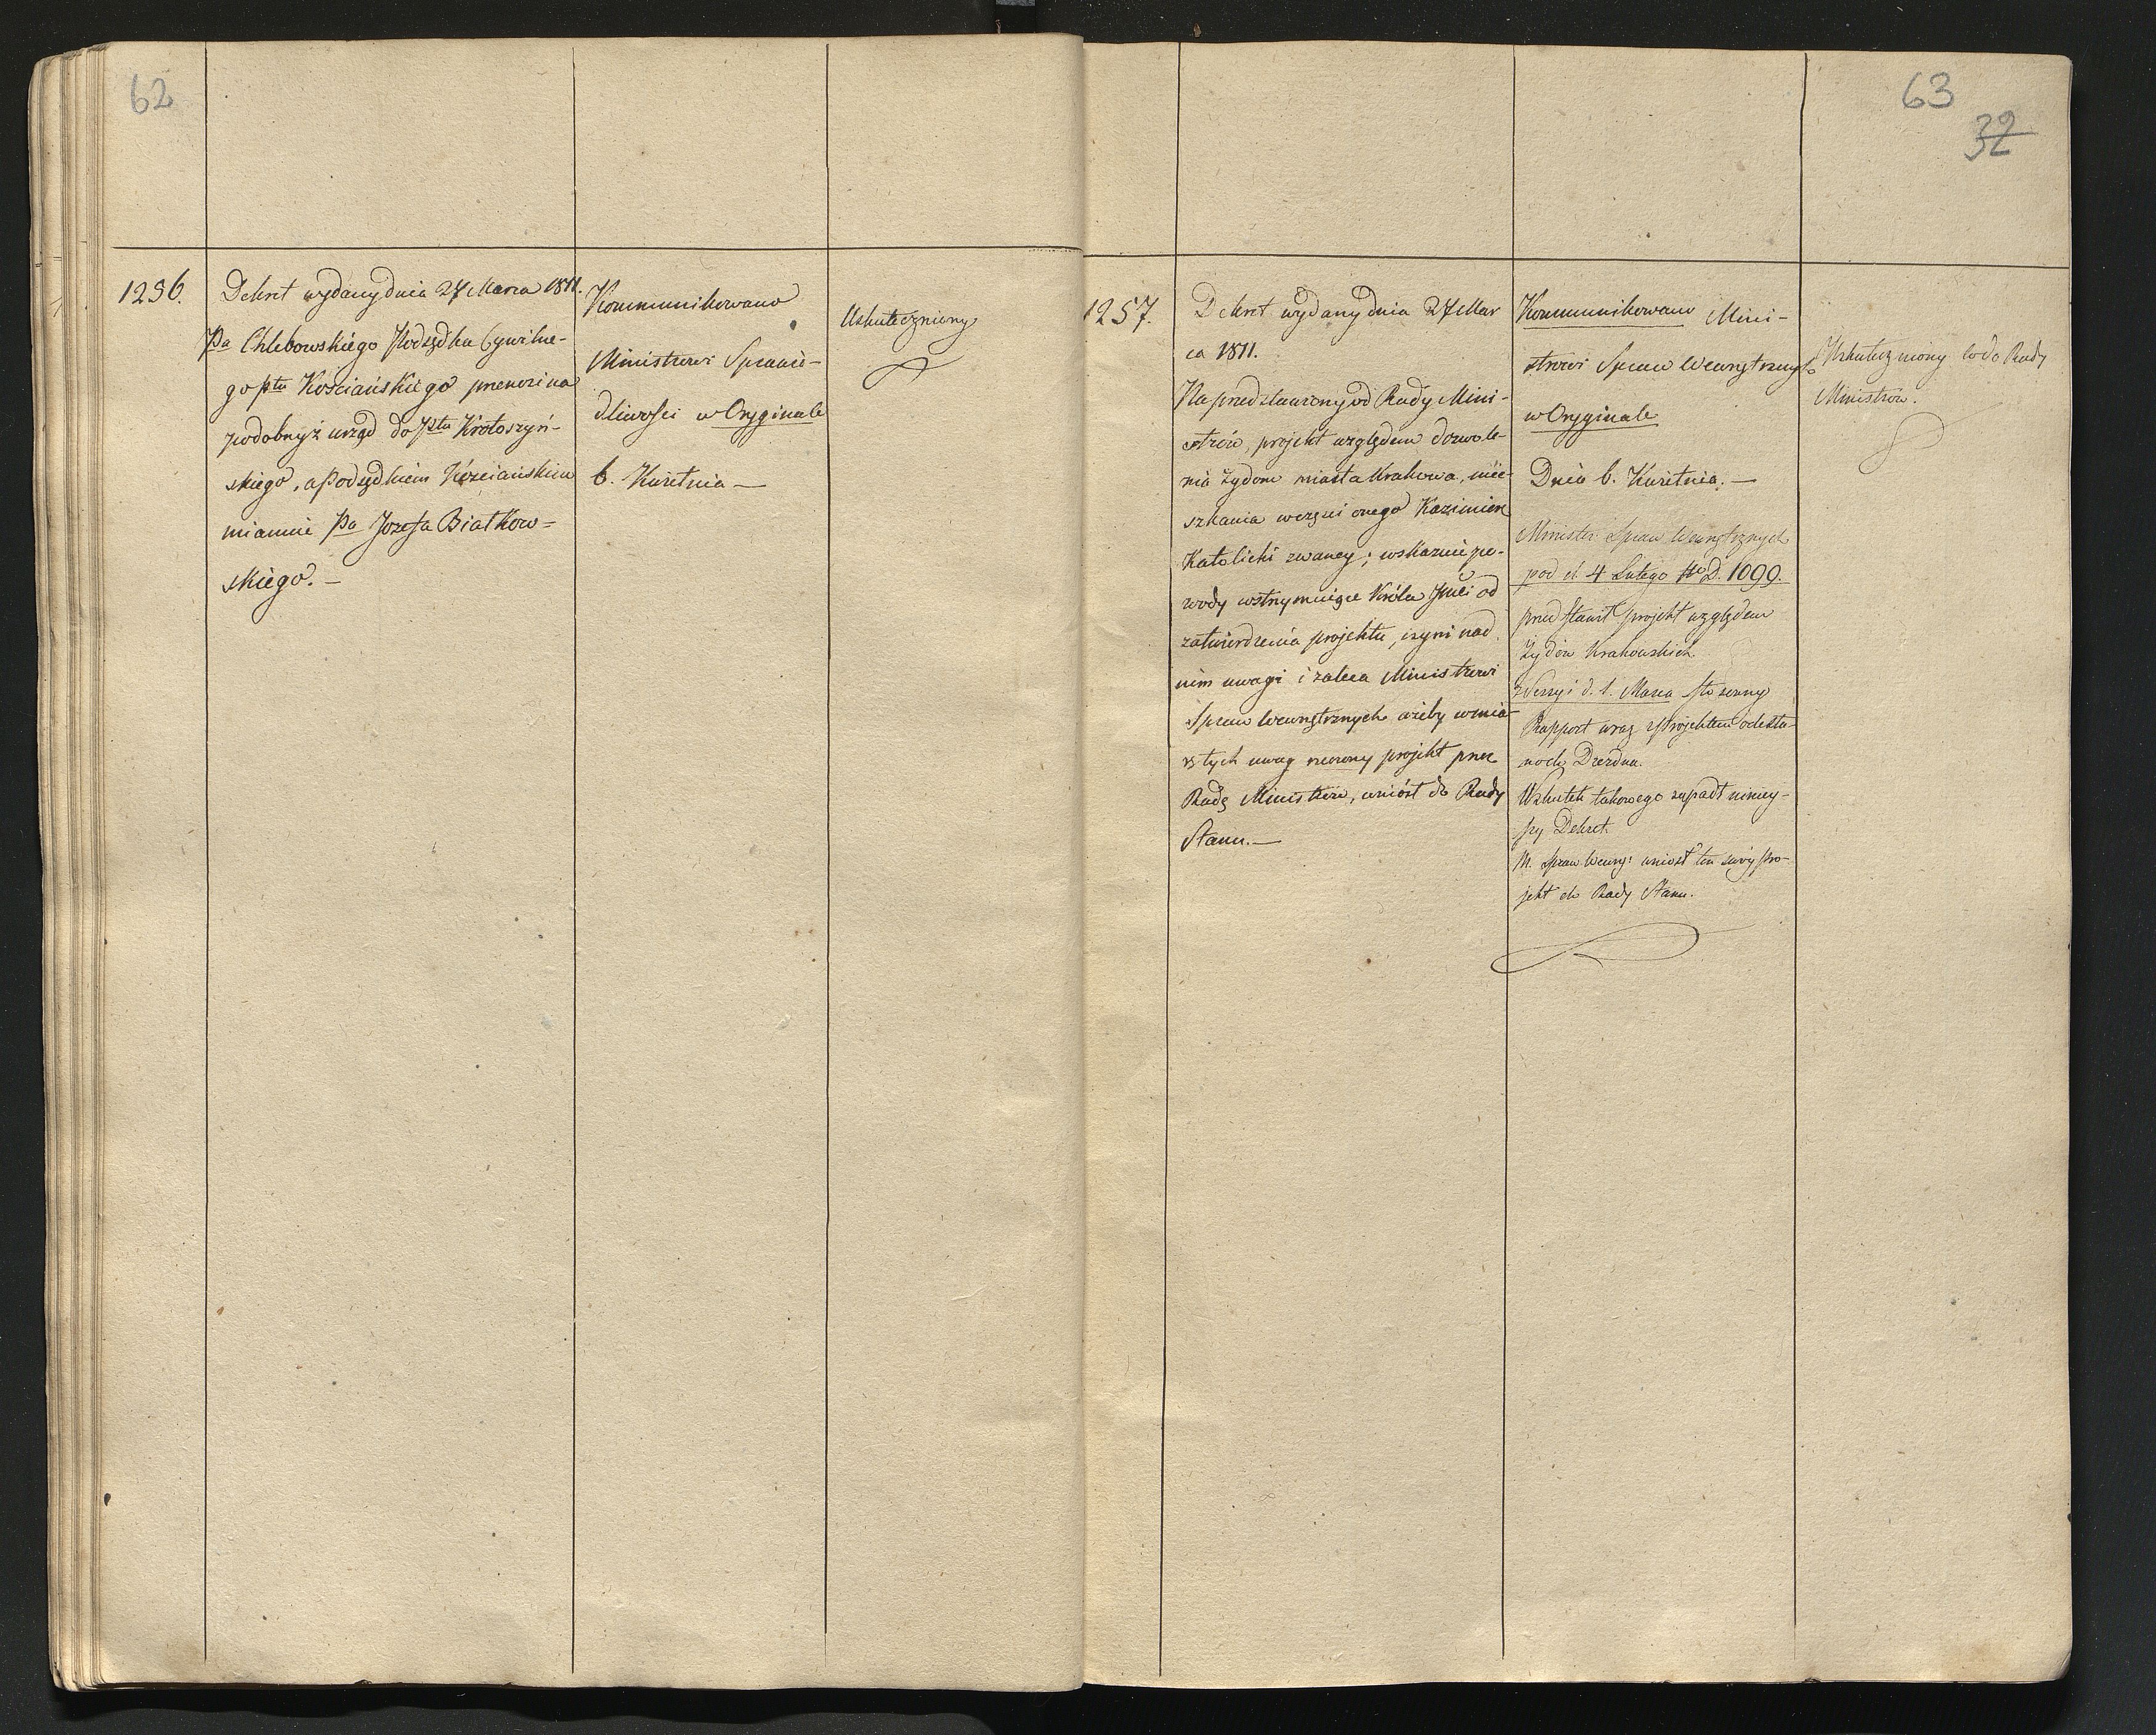 62
1256.
Dekret wydany dnia 27 Marca 1811.
Pa Chlebowskiego Podsędka Cywilne-
go ptu Kościańskiego przenosi na
podobnyż urząd do Ptu Krotoszyń-
skiego, a Podsędkiem Kościańskim
mianuie Pa Jozefa Białkow-
skiego. –
Kommunikowano
Ministrowi Sprawie-
dliwości w Oryginale
6. Kwietnia —
Uskuteczniony
63
32
1257.
Dekret wydany dnia 27 Mar
ca 1811.
Na przedstawiony od Rady Mini-
strów, projekt względem dozwole-
nia Żydom miasta Krakowa, mie-
szkania w części onego Kazimierz
Katolicki zwaney; wskazuie po-
wody wstrzymuiące Króla Jmci od
zatwierdzenia projektu, czyni nad
nim uwagi i zaleca Ministrowi
Spraw Wewnętrznych ażeby w mia
rę tych uwag projekt przez
Radę Ministrów, wniósł do Rady
Stanu. —
Kommunikowano Mini-
strowi Spraw Wewnętrznych
w Oryginale
Dnia 6. Kwietnia. —
Minister Spraw Wewnętrznych
pod d. 4 Lutego No D. 1099.
przedstawił projekt względem
Żydów Krakowskich
z Sessyi d. 1. Marca
Rapport wraz z Projektem odesła-
no do Drezdna.
Wskutek takowego zapadł niniey-
szy Dekret.
M. Spraw Wewn: wniosł ten swóy pro-
jekt do Rady Stanu.
Uskuteczniony co do Rady
Ministrów.